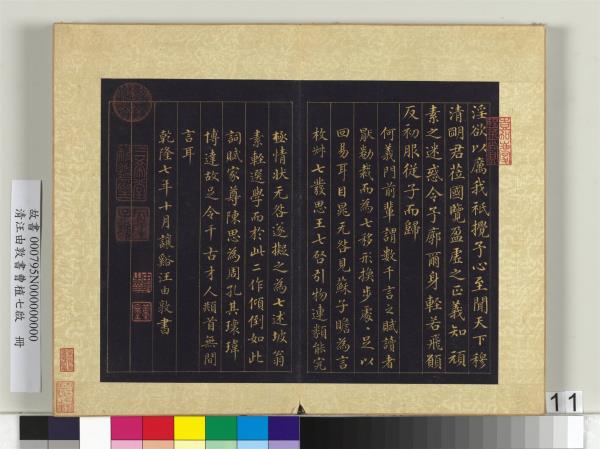 淫欲以厲我祇攪予心至聞天下穆
清明君莅國覽盈虛之正義知頑
素之迷惑令予廓爾身輕若飛願
反初服從子而歸
何義門前輩謂數千言之賦讀者
厭勌裁而為七移形換步處々足以
回易耳目晁无咎見蘇子瞻為言
枚叔七發思王七啓引物連類能究
極情狀无咎遂擬之為七述坡翁
素輕選學而於此二作傾倒如此
詞賦家尊陳思為周孔其瓌瑋
博達故足令千古才人頫首無間
言耳
乾隆七年十月讓谿汪由敦書
故書 000795N000000000
清汪由敦書曹植七啟 冊
11